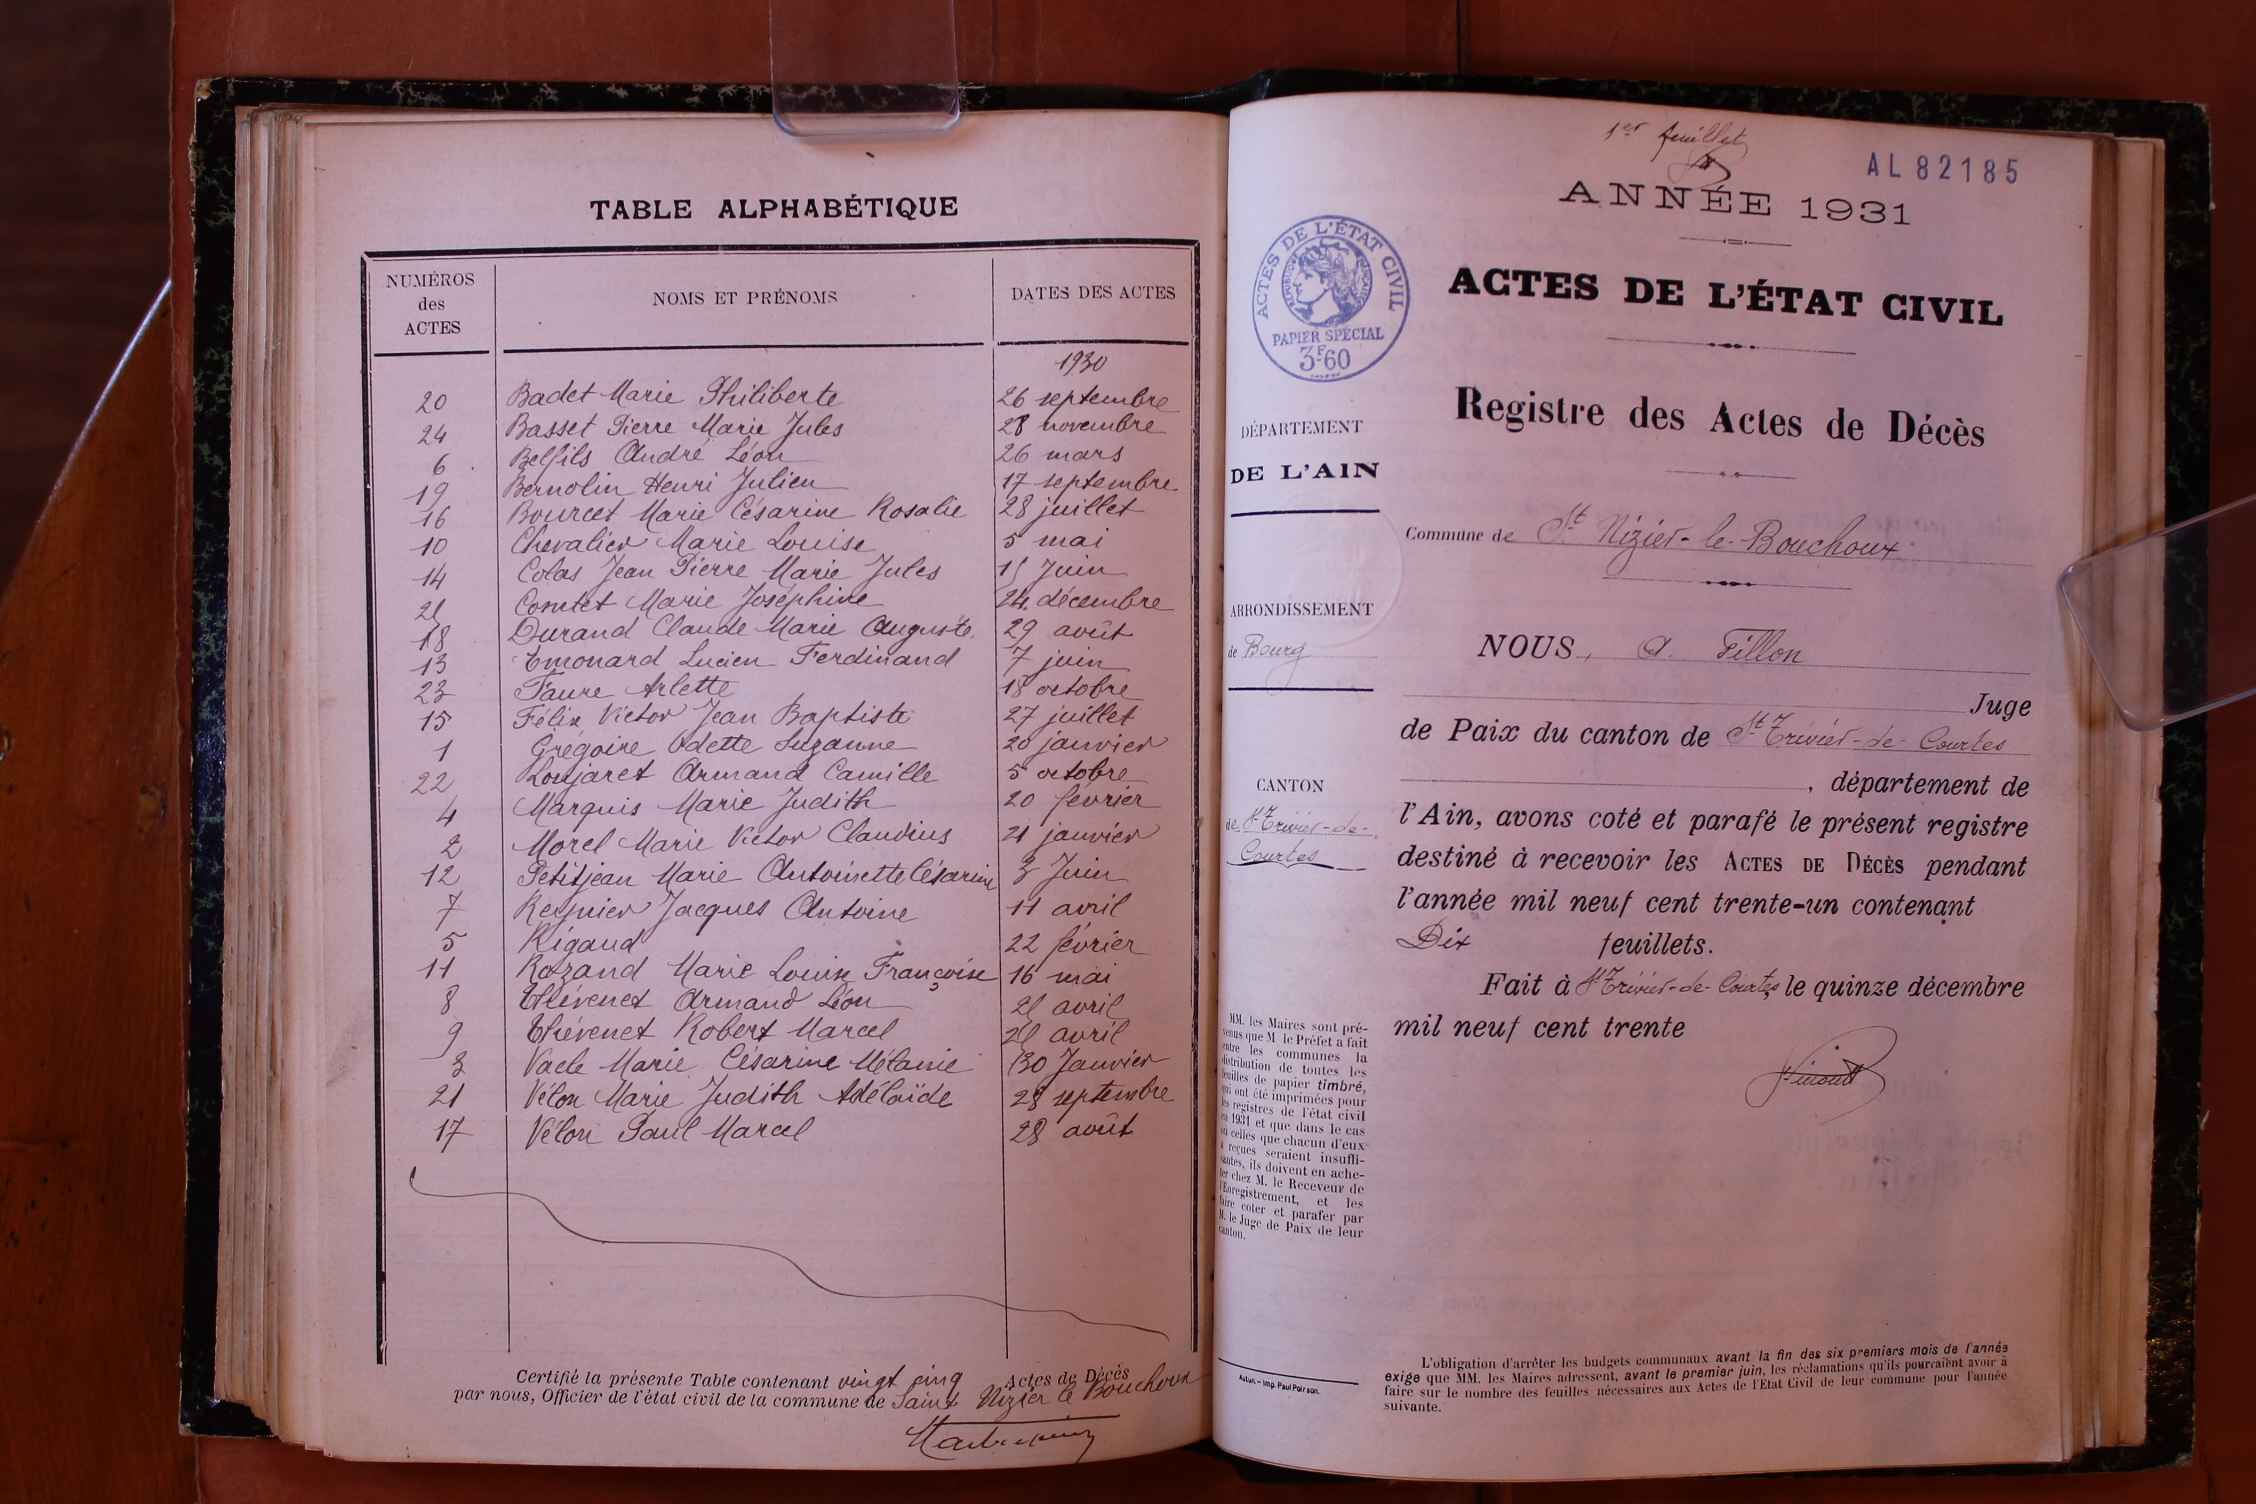 TABLE ALPHABÉTIQUE
NUMÉROS des ACTES NOMS ET PRÉNOMS DATES DES ACTES
1930
20 Badet Marie Philiberte 26 septembre
24 Basset Pierre Marie Jules 28 novembre
6 Belfils André Léon 26 mars
19 Bernolin Henri Julien 17 septembre
16 Bourcet Marie Césarine Rosalie 28 juillet
10 Chevalier Marie Louise 5 mai
14 Colas Jean Pierre Marie Jules 15 Juin
25 Comtet Marie Joséphine 24 décembre
18 Durand Claude Marie Auguste 29 août
13 Emonard Lucien Ferdinand 7 juin
23 Faure Arlette 18 octobre
15 Félix Victor Jean Baptiste 27 juillet
1 Grégoire Odette Suzanne 20 janvier
22 Loujaret Armand Camille 5 octobre
4 Marquis Marie Judith 20 février
2 Morel Marie Victor Claudius 21 janvier
12 Petitjean Marie Antoinette Césarine 3 Juin
7 Reynier Jacques Antoine 11 avril
5 Rigaud 22 février
11 Rozand Marie Louise Françoise 16 mai
8 Thévenet Armand Léon avril
9 Thévenet Robert Marcel avril
3 Vacle Marie Césarine Mélanie 30 Janvier
21 Vélon Marie Judith Adélaïde 28 septembre
17 Vélon Paul Marcel 28 août
Certifié la présente Table contenant vingt cinq Actes de Décès
par nous, Officier de l'état civil de la commune de Saint Nizier le Bouchoux
1er feuillet
AL 82185
ANNÉE 1931
ACTES DE L'ÉTAT CIVIL
RÉPUBLIQUE FRANÇAISE
PAPIER SPÉCIAL
3F60
ACTES DE L'ÉTAT CIVIL
Registre des Actes de Décès
DÉPARTEMENT
DE L'AIN
Commune de St Nizier-le-Bouchoux
ARRONDISSEMENT
de Bourg
NOUS, A. Fillon
Juge
de Paix du canton de St Trivier-de-Courtes
, département de
CANTON
de St Trivier-de-
Courtes
l'Ain, avons coté et parafé le présent registre
destiné à recevoir les ACTES DE DÉCÈS pendant
l'année mil neuf cent trente-un contenant
Dix feuillets.
Fait à St Trivier-de-Courtes le quinze décembre
mil neuf cent trente
MM. les Maires sont pré-
venus que M le Préfet a fait
entre les communes la
distribution de toutes les
feuilles de papier timbré,
qui ont été imprimées pour
les registres de l'état civil
en 1931 et que dans le cas
où celles que chacun d'eux
a reçues seraient insuffi-
santes, ils doivent en ache-
ter chez M. le Receveur de
l'Enregistrement, et les
faire coter et parafer par
M. le Juge de Paix de leur
canton.
Autun. – Imp. Paul Poirson.
L'obligation d'arrêter les budgets communaux avant la fin des six premiers mois de l'année
exige que MM. les Maires adressent, avant le premier juin, les réclamations qu'ils pourraient avoir à
faire sur le nombre des feuilles nécessaires aux Actes de l'Etat Civil de leur commune pour l'année
suivante.